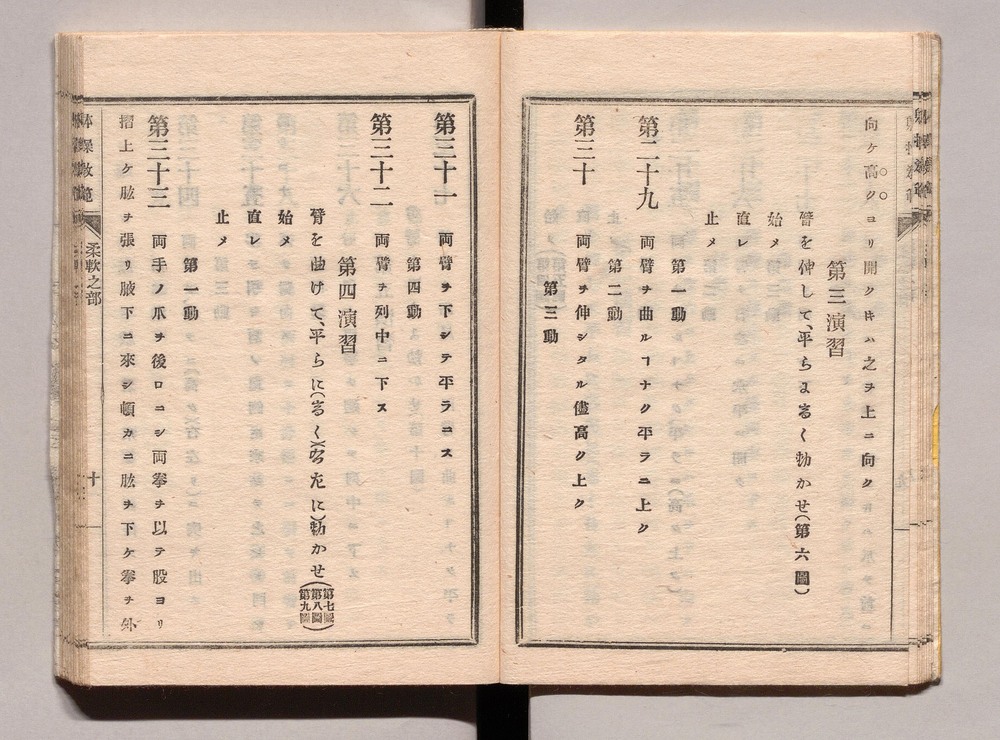 向ケ高クヨリ開クキハ之ヲ上ニ向ク
第三演習
臂を伸して、平らまるく動かせ(第六圖)
始メ
直レ
止メ
第一動
第二十九 両臂ヲ曲ルヿナク平ラニ上ク
第二動
第三十 両臂ヲ伸シタル儘高ク上ク
第三動
第三十一 両臂ヲ下シテ平ラニス
第四動
第三十二 両臂ヲ列中ニ下ス
第四演習
臂を曲けて、平らに(まるく)(なゝに)動かせ(第七圖第八圖第九圖)
始メ
直レ
止メ
第一動
第三十三 両手ノ爪ヲ後ロニシ両拳ヲ以テ股ヨリ
摺上ケ肱ヲ張リ腋下ニ來シ頓カニ肱ヲ下ケ拳ヲ外
体操教範
柔軟之部
十